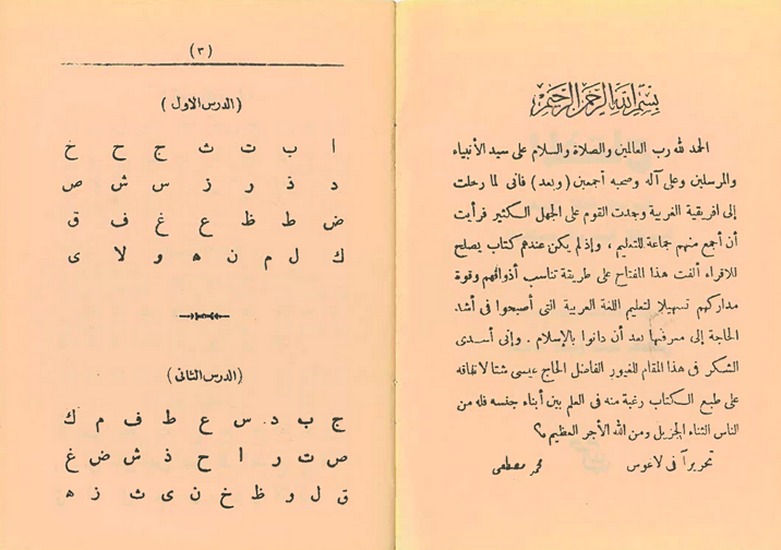 بسم الله الرحمن الرحيم
الحمد لله رب العالمين والصلاة والسلام على سيد الأنبياء
والمرسلين وعلى آله وصحبه أجمعين (وبعد) فانى لما رحلت
إلى افريقية الغربية وجدت القوم على الجهل الكثير فرأيت
أن أجمع منهم جماعة للتعليم ، وإذ لم يكن عندهم كتاب يصلح
للاقراء ألفت هذا المفتاح على طريقة تناسب أذواقهم وقوة
مداركهم تسهيلا لتعليم اللغة العربية التى أصبحوا فى أشد
الحاجة إلى معرفتها بعد أن دانوا بالإسلام . وإنى أسدى
الشكر فى هذا المقام للغيور الفاضل الحاج عيسى شتا لانفاقه
على طبع الكتاب رغبة منه فى العلم بين أبناء جنسه فله من
الناس الثناء الجزيل ومن الله الأجر العظيم
تحريرآ فى لاغوس محمد مصطفى
(٣)
(الدرس الاول)
ا ب ت ث ج ح خ
د ذ ر ز س ش ص
ض ط ظ ع غ ف ق
ك ل م ن ه و لا ى
(الدرس الثانى)
ج ب د س ع ط ف م ك
ص ت ر ا ح ذ ش ض غ
ق ل و ظ خ ن ى ث ز ه